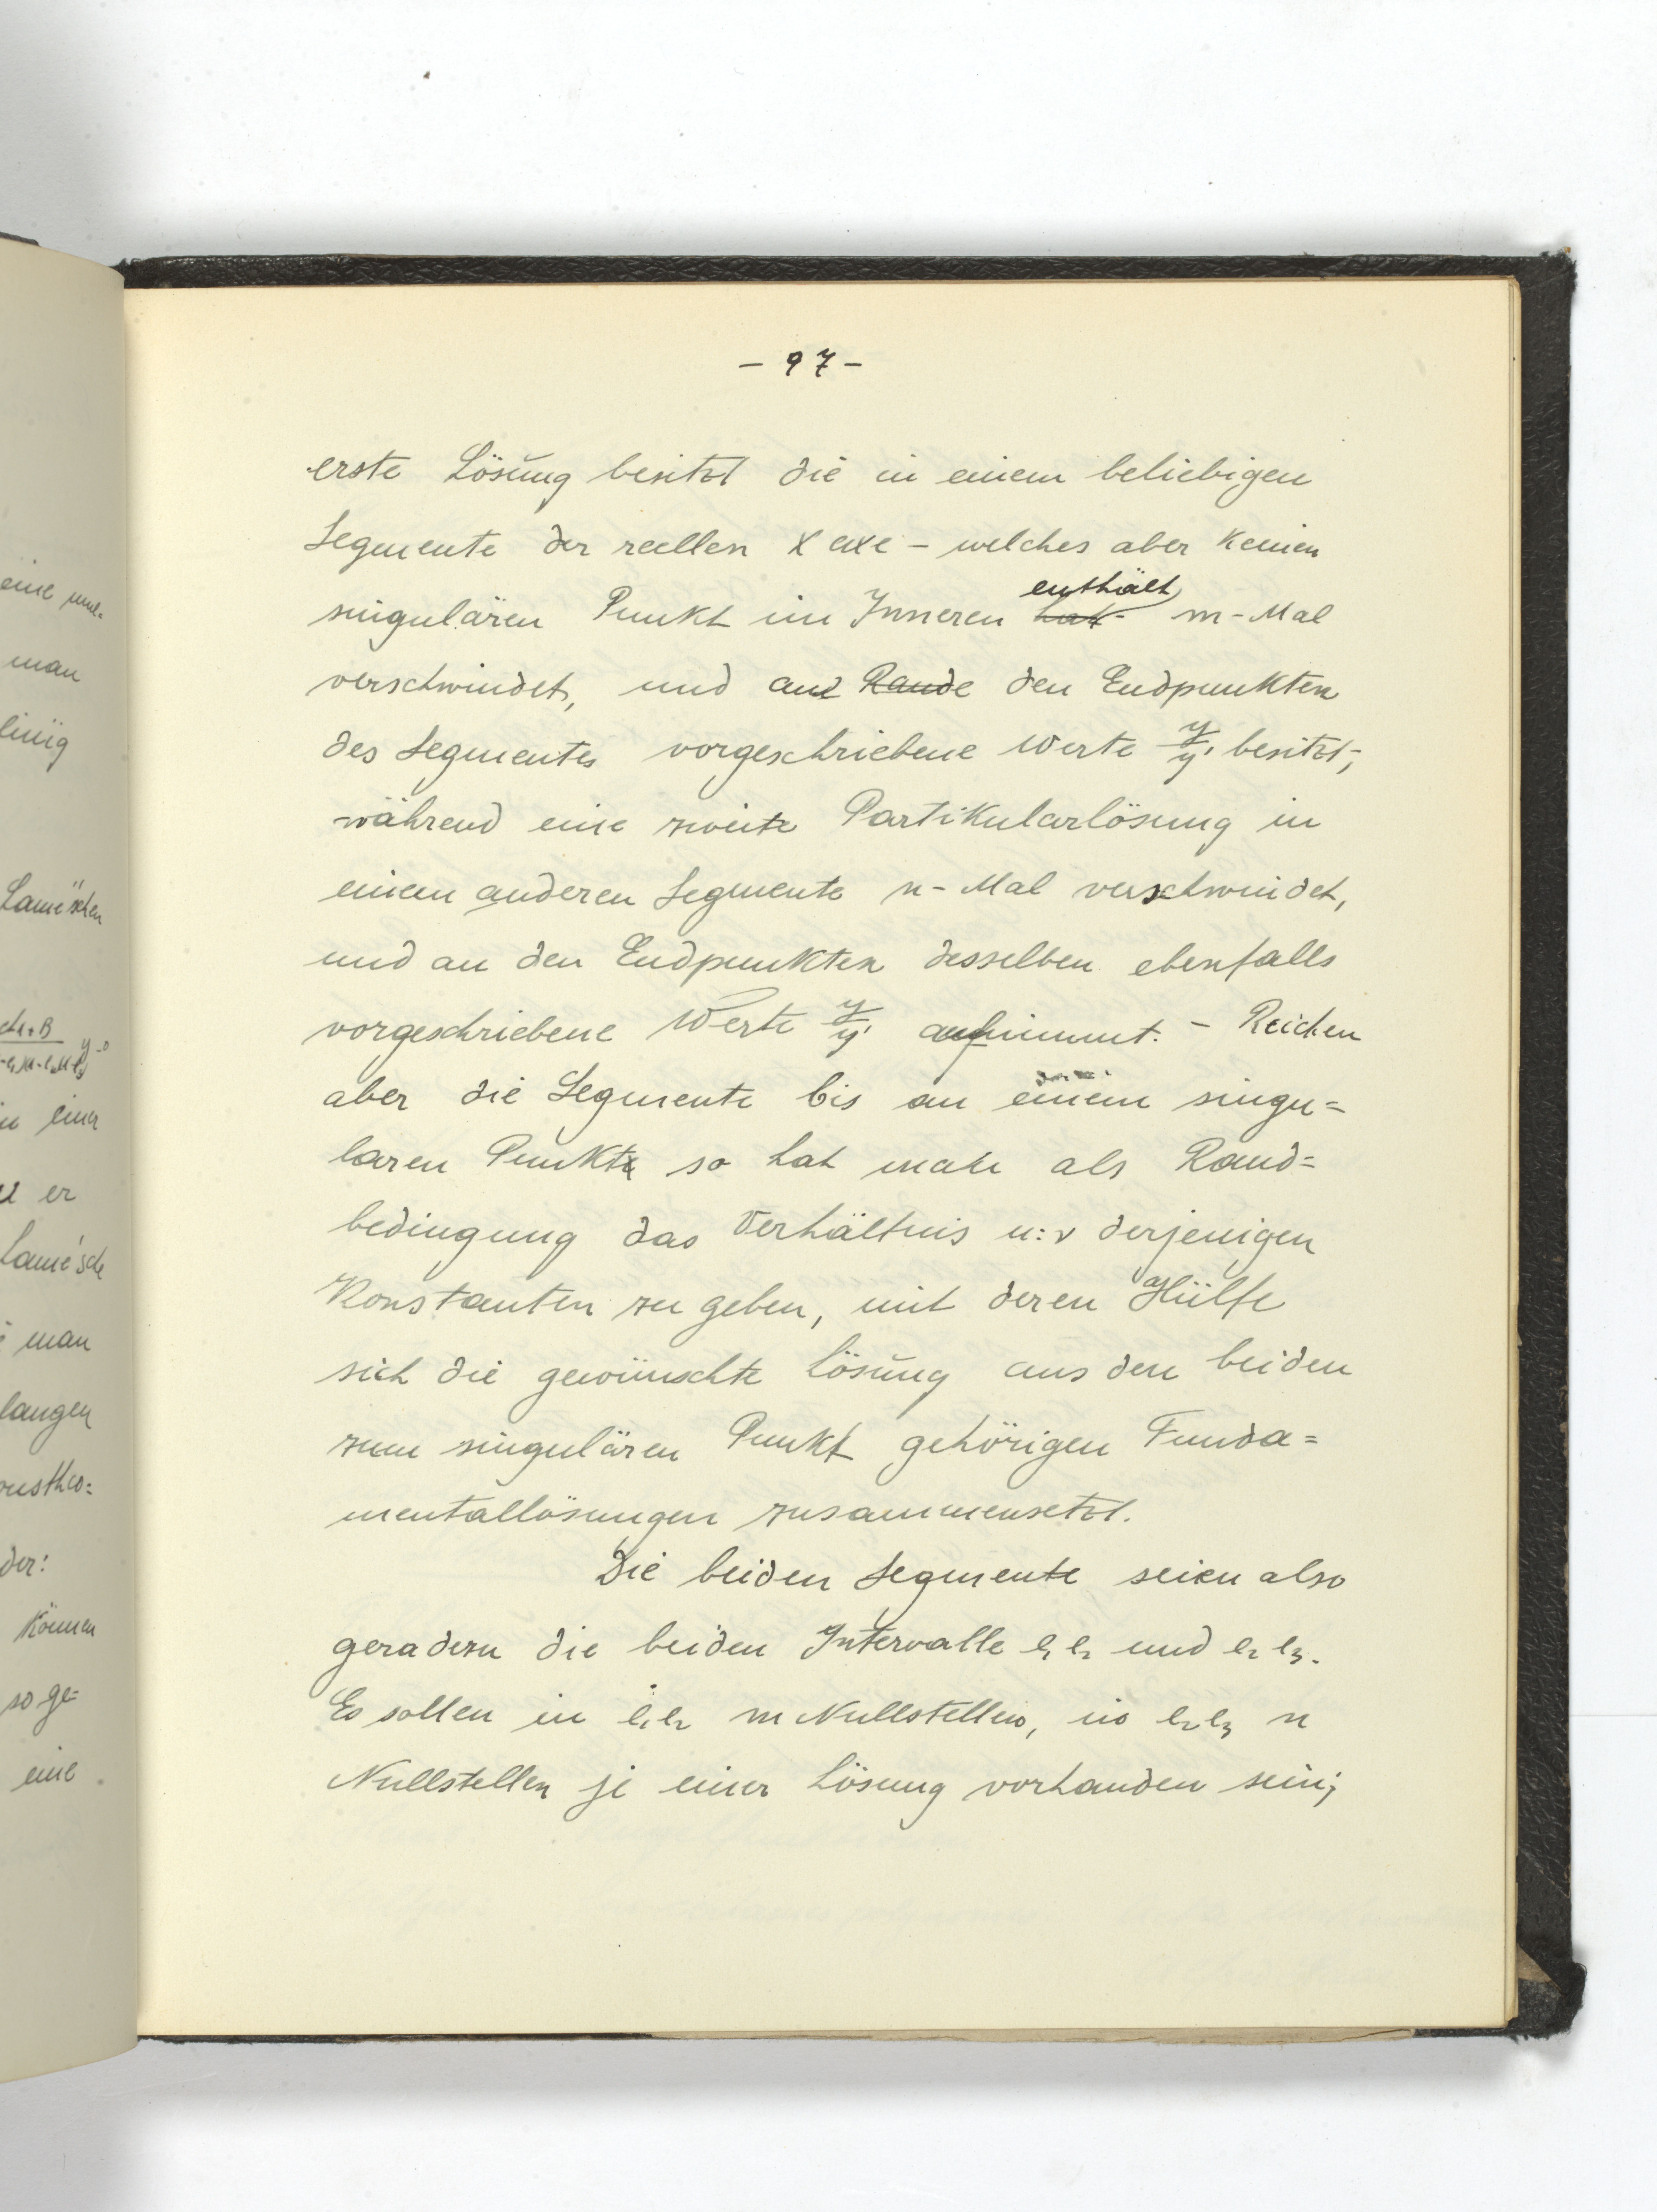 eine
man
Lamé'schen
er
Lamé'sche
man
langen
der:
können
so ge-
eine
- 97 -
erste Lösung besitzt die in einem beliebigen
Segmente der reellen x axe - welches aber keinen
singulären Punkt im Inneren hat enthält m-Mal
verschwindet, und am Rande den Endpunkten
des Segmentes vorgeschriebene Werte y/y' besitzt;
während eine zweite Partikularlösung in
einem anderen Segmente n-Mal verschwindet,
und an den Endpunkten desselben ebenfalls
vorgeschriebene Werte y/y' annimmt. - Reichen
aber die Segmente bis an einem singu=
laren Punkte so hat man als Rand=
bedingung das Verhältnis u:v derjenigen
Konstanten zu geben, mit deren Hülfe
sich die gewünschte Lösung aus den beiden
zum singulären Punkt gehörigen Funda=
mentallösungen zusammensetzt.
Die beiden Segmente seien also
geradezu die beiden Intervalle e₁ e₂ und e₂ e₃.
Es sollen in e₁e₂ m Nullstellen, in e₂e₃ n
Nullstellen je einer Lösung vorhanden sein;